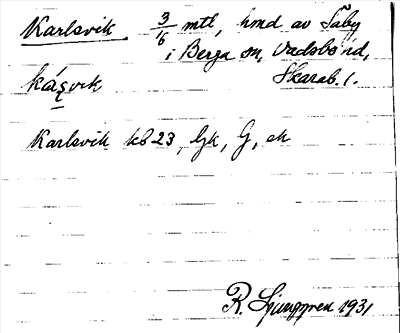 Karlsvik 3/16 mtl, hmd av Täby
i Berga sn, Vadsbo hd,
Skarab. l.
káşvɩk
Karlsvik kb 23, Gk, G, ek
R. Ljunggren 1931